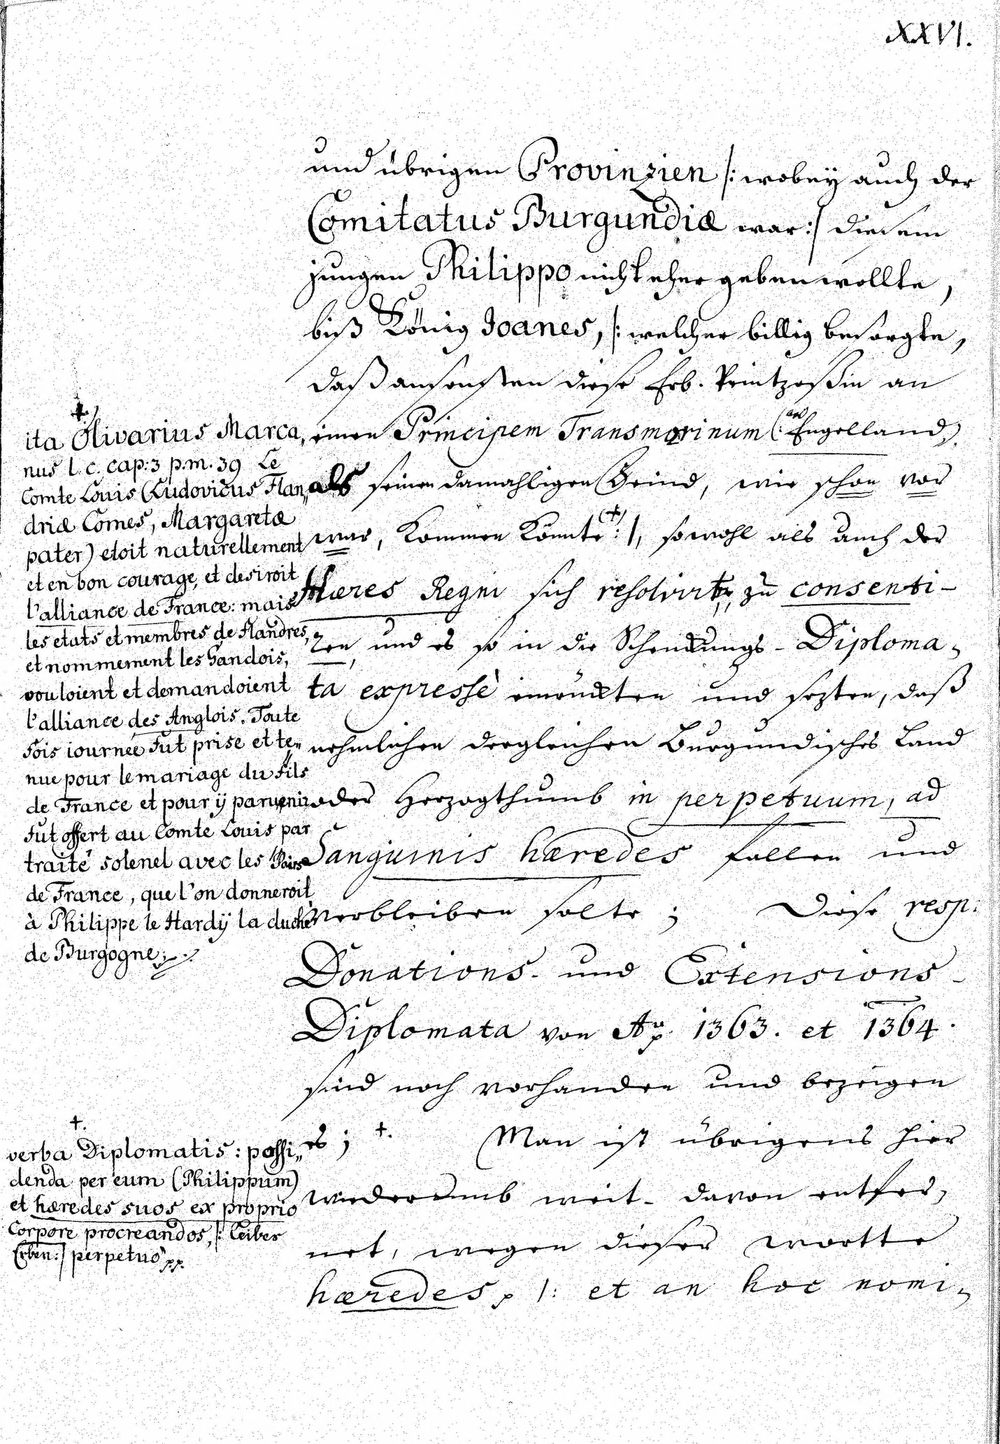 XXVI.
und übrigen Provinzien /: wobey auch der
Comitatus Burgundiæ war :/ diesem
jungen Philippo nicht eher geben wollte,
biß König Joanes, /: welcher billig besorgte,
daß ansonsten diese Erb-Printzeßin an
einen Principem Transmarinum (: an Engelland,
als seinen damahligen Feind, wie schon vor
war, kommen könnte (+) :/, sowohl als auch der
Hæres Regni sich resolvirte, zu consenti-
ren, und es so in die Schenckungs-Diploma,
ta expressè einrückten und sezten, daß
nehmlichen dergleichen Burgundisches Land
oder Herzogthumb in perpetuum, ad
Sanguinis hæredes fallen und
verbleiben solte; Diese resp:
Donations- und Extensions-
Diplomata von Aº. 1363. et 1364.
sind noch vorhanden und bezeigen
es; +. Man ist übrigens hier
wiederumb weit davon entfer,
net, wegen dieser wortte
hæredes, /: et an hoc nomi,
+
ita Olivarius Marca,
nus l. c. cap: 3 p. m. 39 Le
Comte Louis (Ludovicus Flan,,
driæ Comes, Margaretæ
pater) etoit naturellement
et en bon courage, et desiroit
l'alliance de France: mais
les etats et membres de Flandres,
et nommement les Gandois,
vouloient et demandoient
l'alliance des Anglois. Toute
fois iournée fut prise et te,,
nue pour le mariage du fils
de France et pour ÿ parvenir
fut offert au Comte Louis par
traité solenel avec les Pairs
de France, que l'on donneroit
à Philippe le Hardÿ la duché
de Burgogne;
+.
verba Diplomatis: possi,,
denda per eum (Philippum)
et hæredes suos ex proprio
Corpore procreandos, /: Leibes
Erben :/ perpetuo pp.